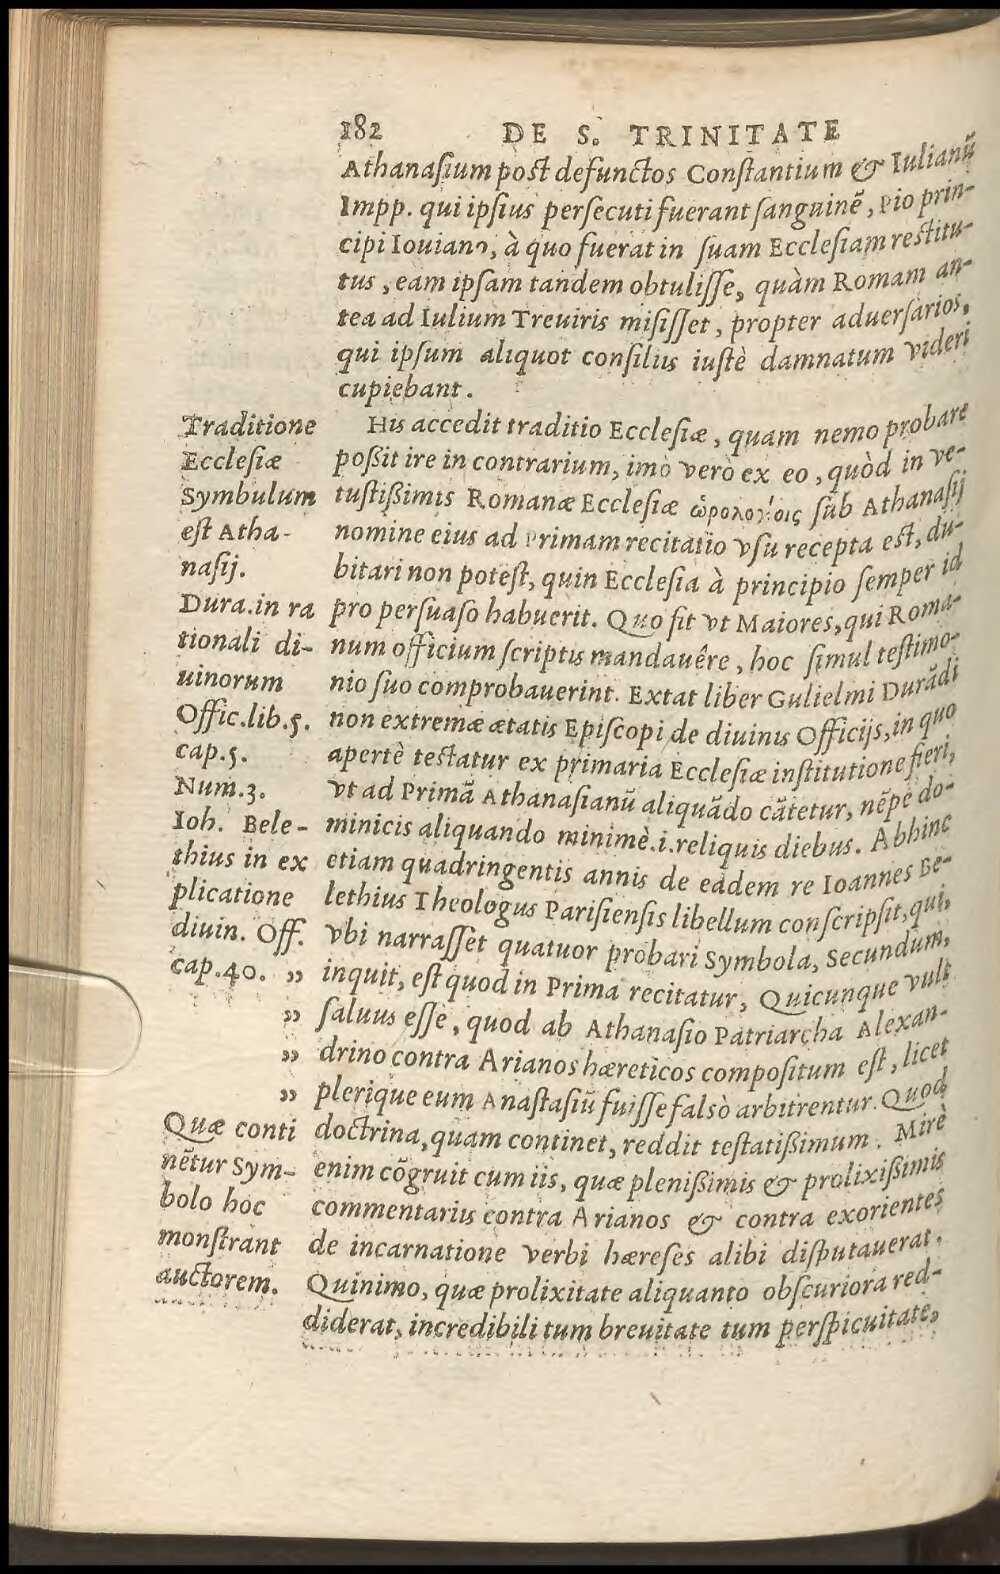 182 DE S. TRINITATE
Athanaſium poſt defunctos Conſtantium & Iulianū
Impp. qui ipſius perſecuti fuerant ſanguinē, pio prin-
cipi Iouiano, à quo fuerat in ſuam Eccleſiam reſtitu-
tus, eam ipſam tandem obtuliſſe, quàm Romam an-
tea ad Iulium Treuiris miſiſſet, propter aduerſarios,
qui ipſum aliquot conſiliis iuſtè damnatum videri
cupiebant.
His accedit traditio Eccleſiæ, quam nemo probare
poßit ire in contrarium, imo verò ex eo, quòd in ve-
tuſtißimis Romanæ Eccleſiæ ὡρολογίοις ſub Athanaſij
nomine eius ad Primam recitatio vſu recepta eſt, du-
bitari non poteſt, quin Eccleſia à principio ſemper id
pro perſuaſo habuerit. Quo fit vt Maiores, qui Roma-
num officium ſcriptis mandauêre, hoc ſimul teſtimo-
nio ſuo comprobauerint. Extat liber Gulielmi Durādi
non extremæ ætatis Epiſcopi de diuinis Officijs, in quo
apertè teſtatur ex primaria Eccleſiæ inſtitutione fieri,
vt ad Primā Athanaſianū aliquādo cātetur, nēpe do-
minicis aliquando minimè.i.reliquis diebus. Abhinc
etiam quadringentis annis de eadem re Ioannes Be-
lethius Theologus Pariſienſis libellum conſcripſit, qui,
vbi narraſſet quatuor probari Symbola, Secundum,
inquit, eſt quod in Prima recitatur, Quicunque vult
ſaluus eſſe, quod ab Athanaſio Patriarcha Alexan-
drino contra Arianos hæreticos compoſitum eſt, licet
plerique eum Anaſtaſiū fuiſſe falsò arbitrentur. Quod
doctrina, quam continet, reddit teſtatißimum. Mirè
enim cōgruit cum iis, quæ pleniſsimis & prolixißimis
commentariis contra Arianos & contra exorientes
de incarnatione verbi hæreſes alibi diſputauerat.
Quinimo, quæ prolixitate aliquanto obſcuriora red-
diderat, incredibili tum breuitate tum perſpicuitate,
Traditione
Eccleſiæ
Symbulum
eſt Atha-
naſij.
Dura.in ra
tionali di-
uinorum
Offic.lib.5.
cap.5.
Num.3.
Ioh. Bele-
thius in ex
plicatione
diuin. Off.
cap.40. „
„
„
„
Quæ conti
nētur Sym-
bolo hoc
monſtrant
auctorem.